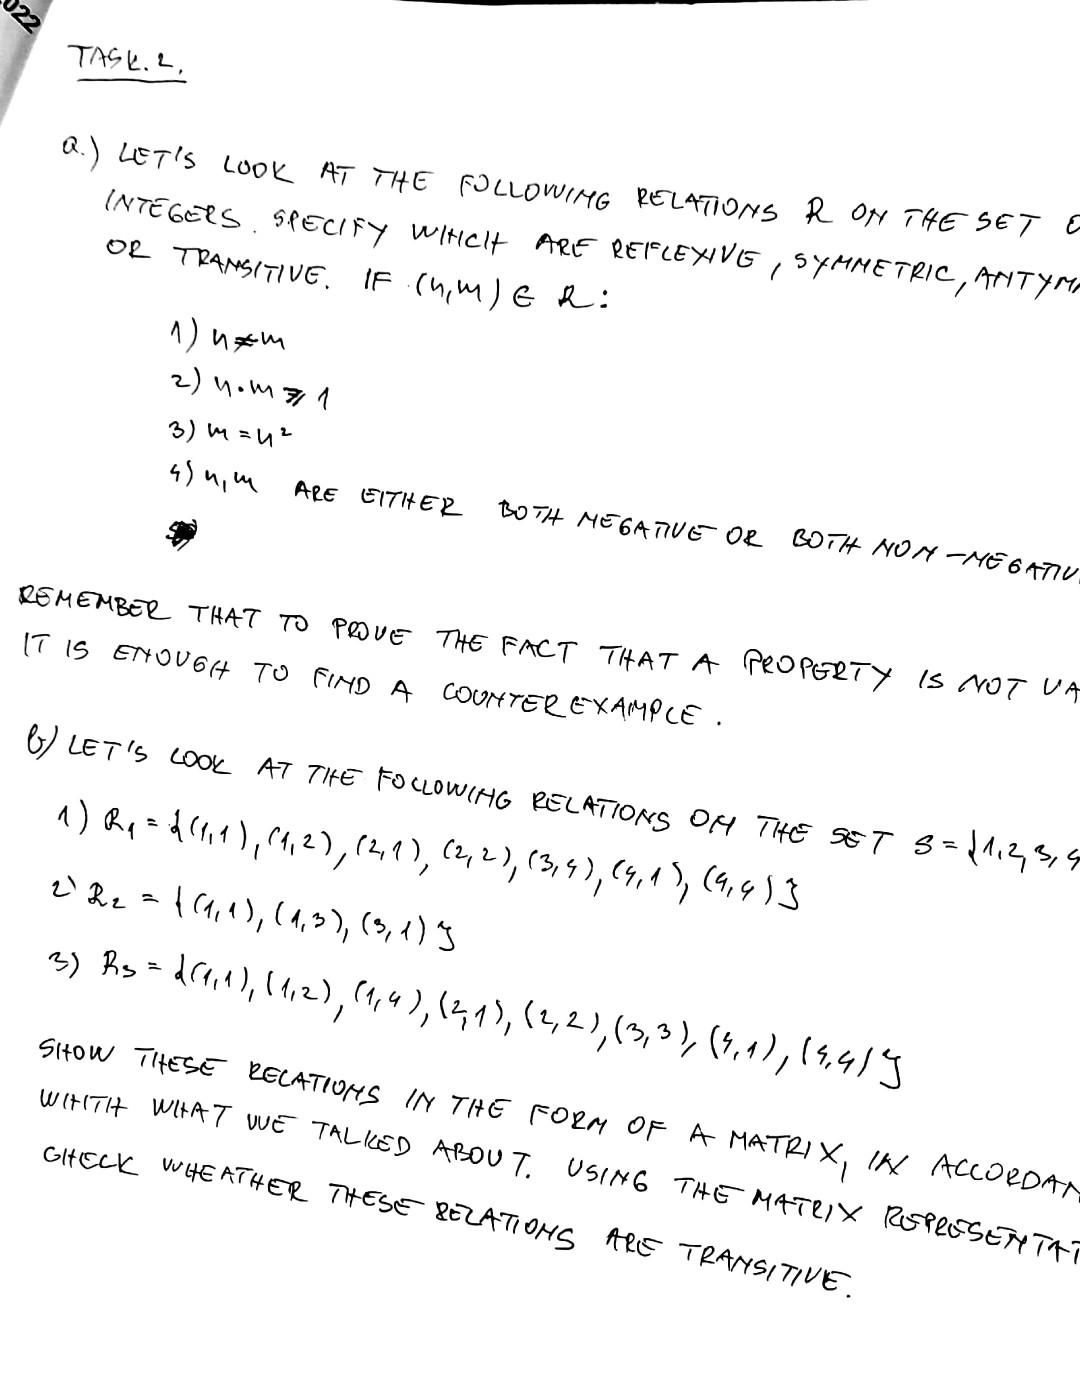 022
TASK.2.
a.) LET'S LOOK AT THE FOLLOWING RELATIONS R ON THE SET
INTEGERS. SPECIFY WHICH ARE REFLEXIVE, SYMMETRIC, ANTYM
OR TRANSITIVE. IF (n,m) ∈ R:
1) n≠m
2) n·m ⩾ 1
3) m = n²
4) n, m ARE EITHER BOTH NEGATIVE OR BOTH NON-NEGATIV
REMEMBER THAT TO PROVE THE FACT THAT A PROPERTY IS NOT VA
IT IS ENOUGH TO FIND A COUNTEREXAMPLE.
b) LET'S LOOK AT THE FOLLOWING RELATIONS ON THE SET S={1,2,3,4
1) R₁ = {(1,1), (1,2), (2,1), (2,2), (3,4), (4,1), (4,4)}
2) R₂ = {(1,1), (1,3), (3,1)}
3) R₃ = {(1,1), (1,2), (1,4), (2,1), (2,2), (3,3), (4,1), (4,4)}
SHOW THESE RELATIONS IN THE FORM OF A MATRIX, IN ACCORDAN
WHITH WHAT WE TALKED ABOUT. USING THE MATRIX REPRESENTAT
CHECK WHEATHER THESE RELATIONS ARE TRANSITIVE.